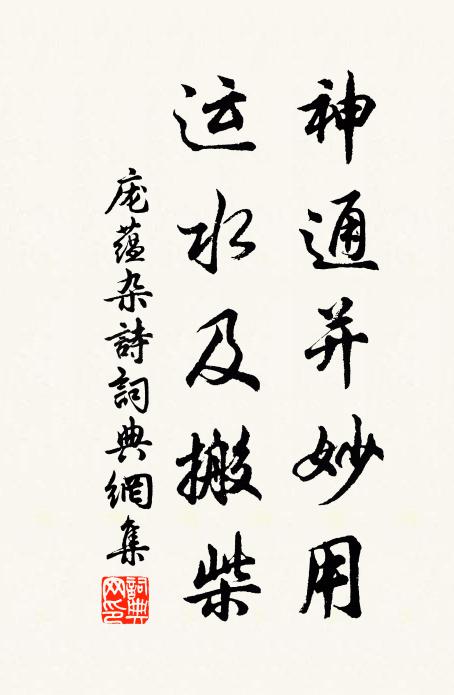 神通并妙用
运水及搬柴
庞蕴杂詩詞典網集
詞典网印